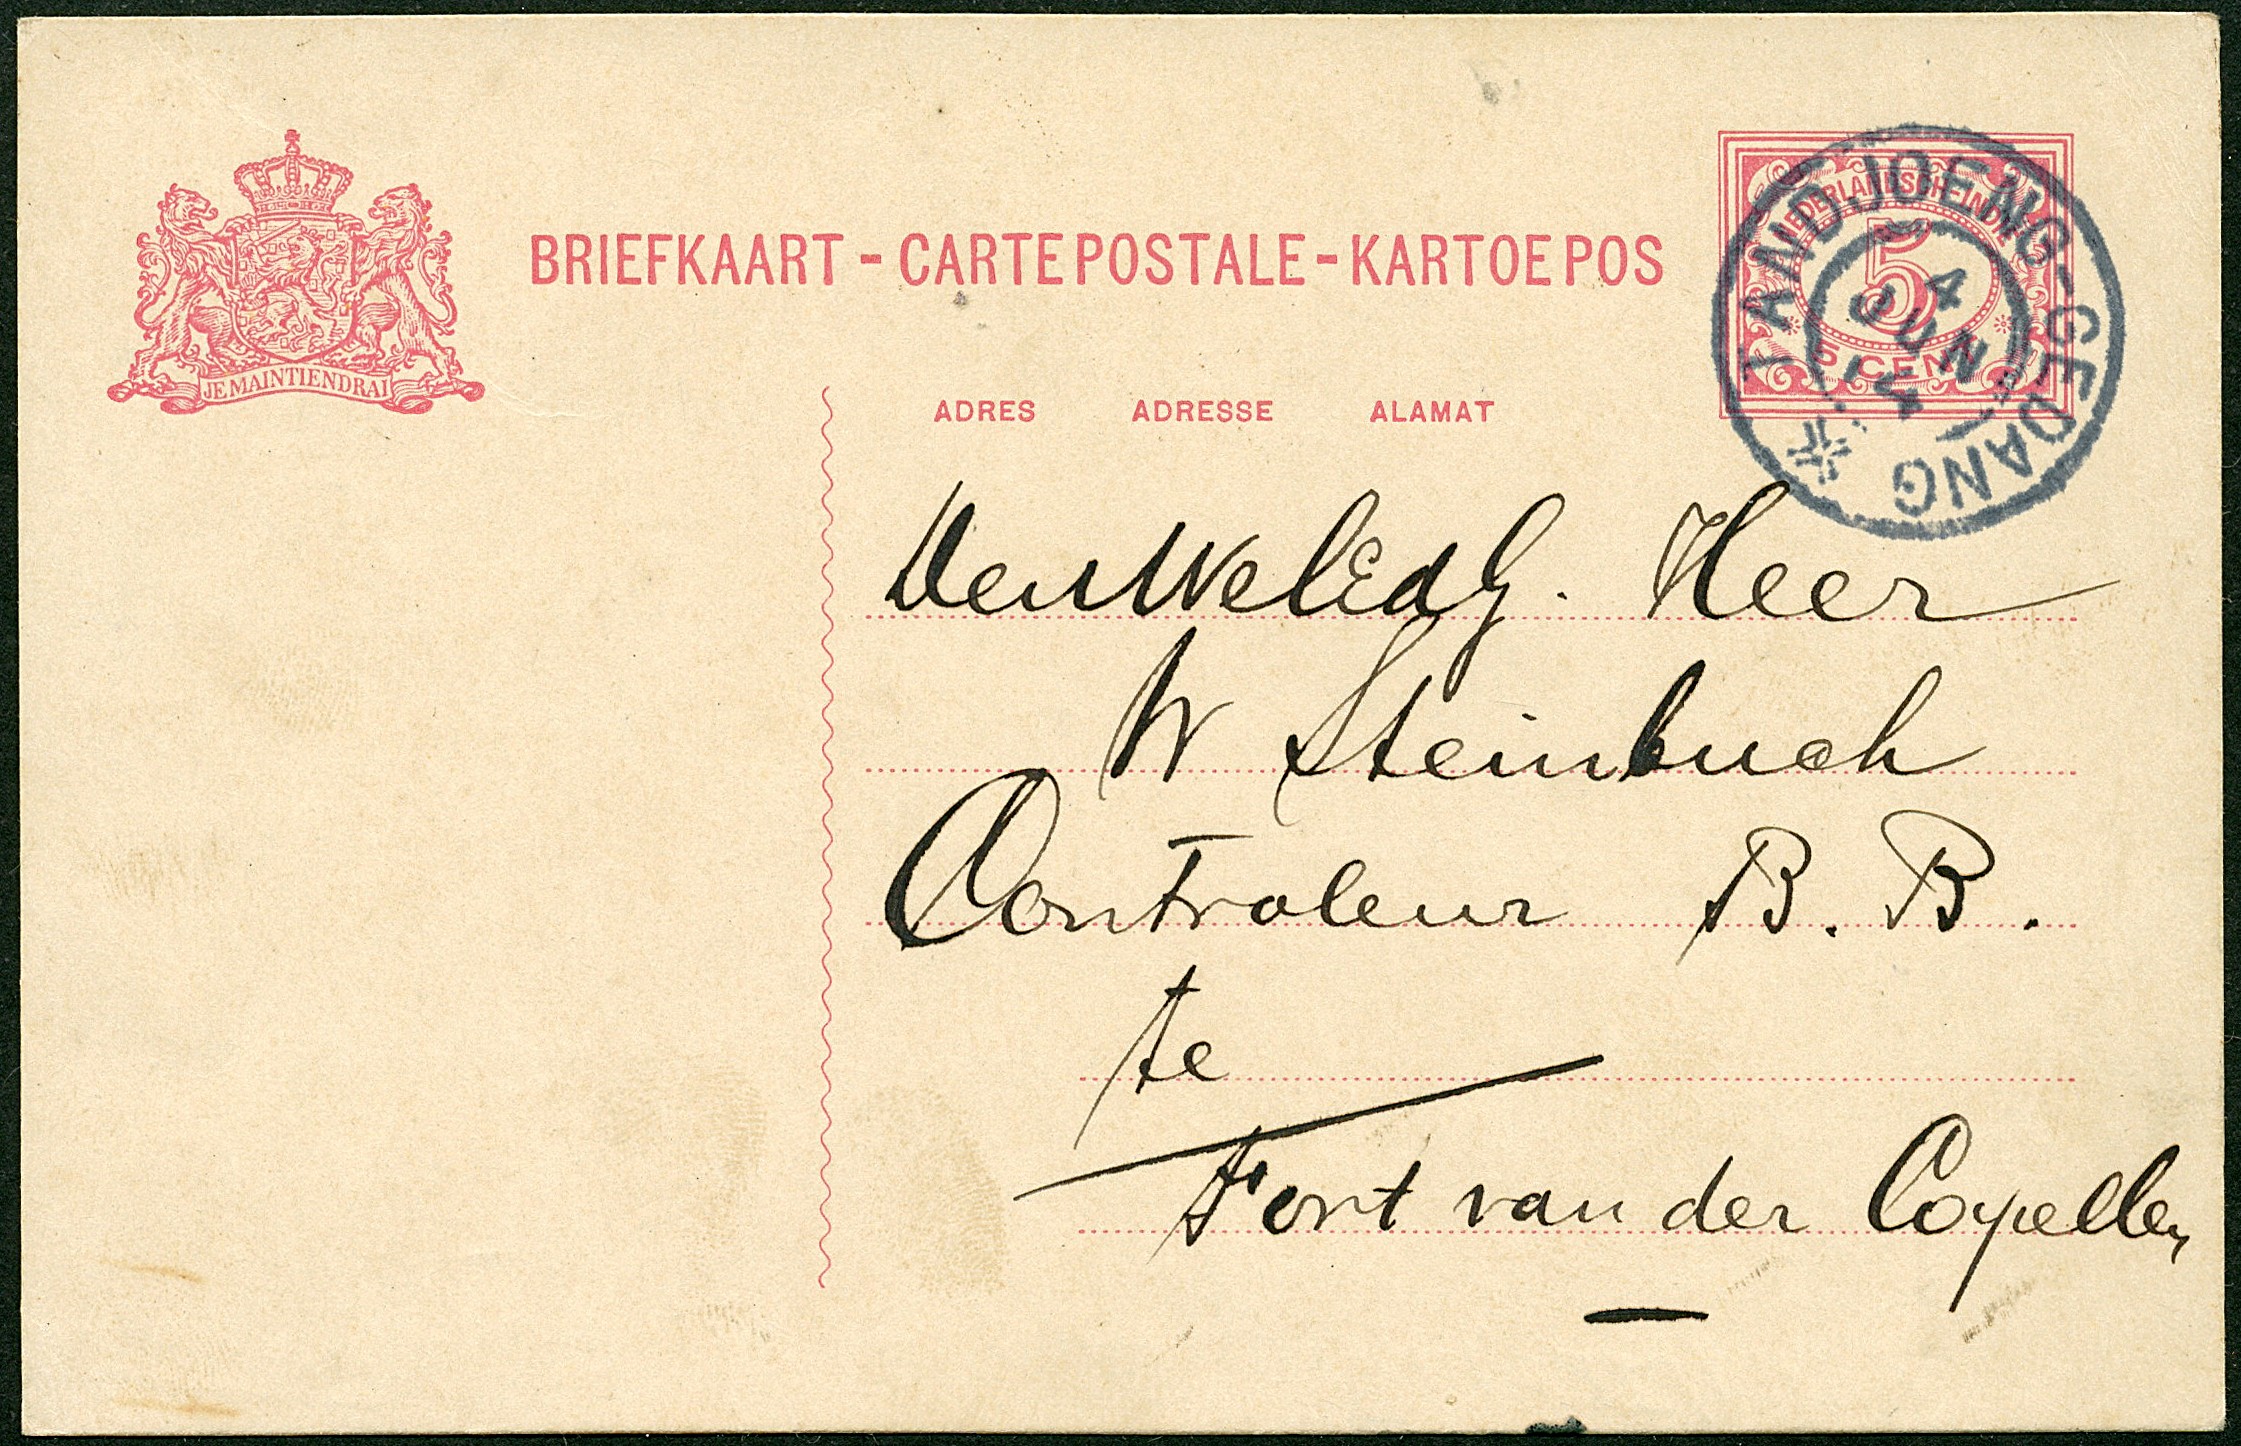 JE MAINTIENDRAI
BRIEFKAART - CARTE POSTALE - KARTOE POS
NEDERLANDSCH-INDIË
5
5 CENT
TANDJOENG-GEDANG
4
JUN
14
ADRES ADRESSE ALAMAT
Den WelEdG. Heer
W Steinbuch
Controleur B. B.
te
Fort van der Capellen